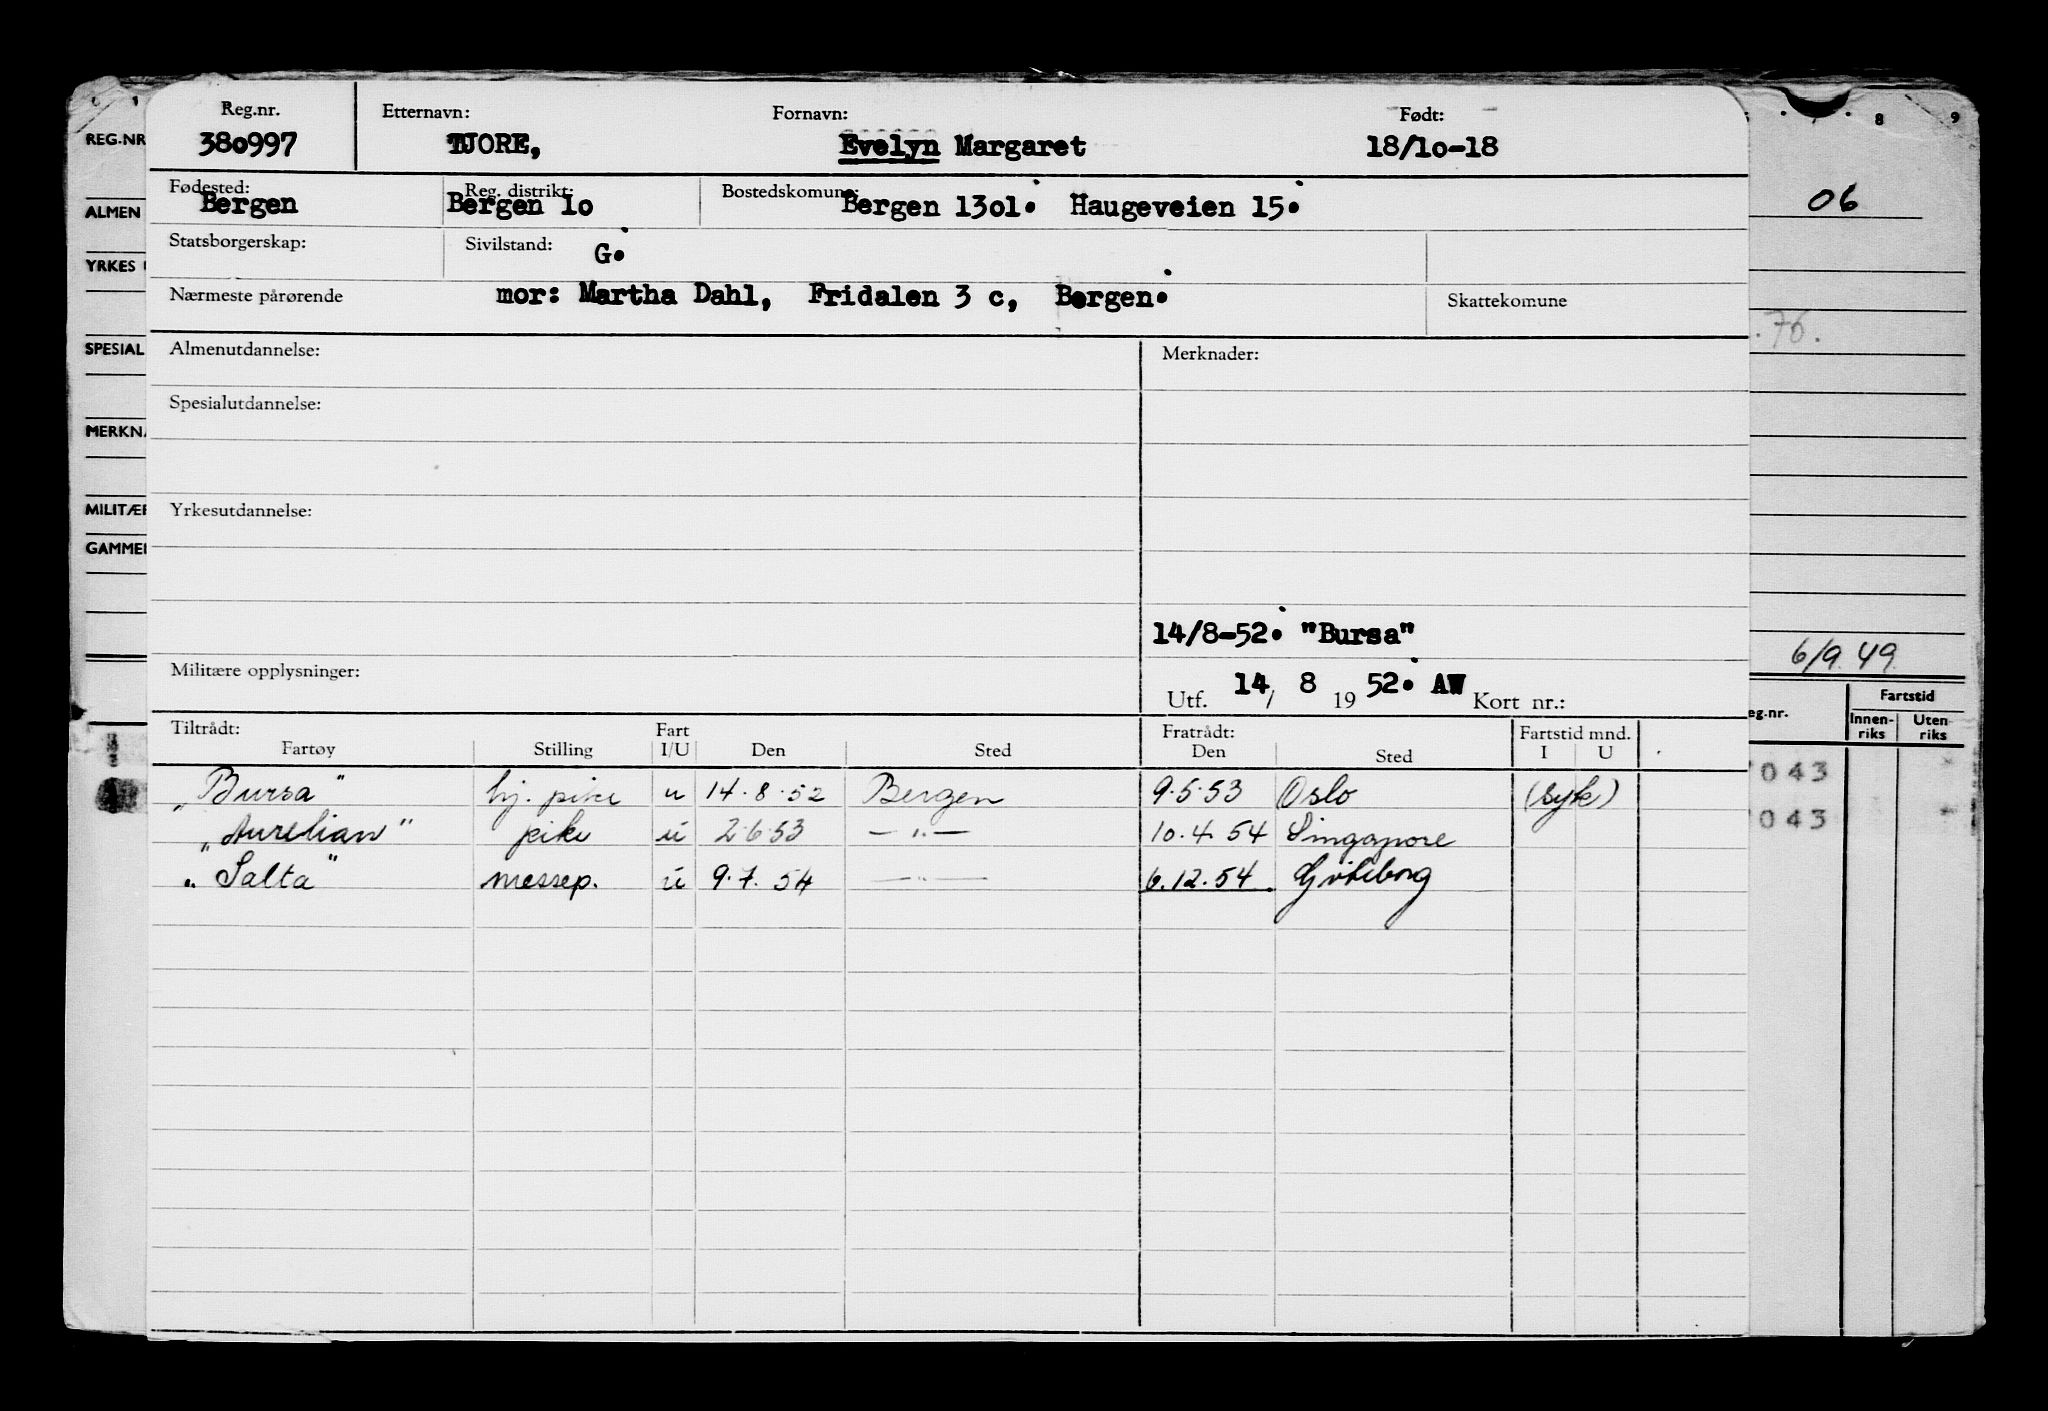 Reg.nr. Etternavn: Fornavn: Født:
REG.NR 380997 TJORE, Evelyn Margaret 18/10-18
8 9
Fødested: Reg. distrikt: Bostedskomune:
Bergen Bergen 10 Bergen 1301. Haugeveien 15.
ALMEN 06
Statsborgerskap: Sivilstand: G.
YRKES
Nærmeste pårørende mor: Martha Dahl, Fridalen 3 c, Bergen. Skattekomune
.76.
SPESIAL Almenutdannelse: Merknader:
Spesialutdannelse:
MERKN
MILITÆR Yrkesutdannelse:
GAMMEL
14/8-52. "Bursa"
6/9.49
Militære opplysninger:
Utf. 14/ 8 19 52. AW Kort nr.:
Tiltrådt: Fart Fratrådt: Fartstid mnd.
Fartøy Stilling I/U Den Sted Den Sted I U
eg.nr. Fartstid
Innen-riks Uten-riks
„Bursa" hj. pike u 14.8.52 Bergen 9.5.53 Oslo (syk)
043
„Aurelian" pike u 2.6.53 —"— 10.4.54 Singapore
043
„Salta" messep. u 9.7.54 —"— 6.12.54. Gøteborg